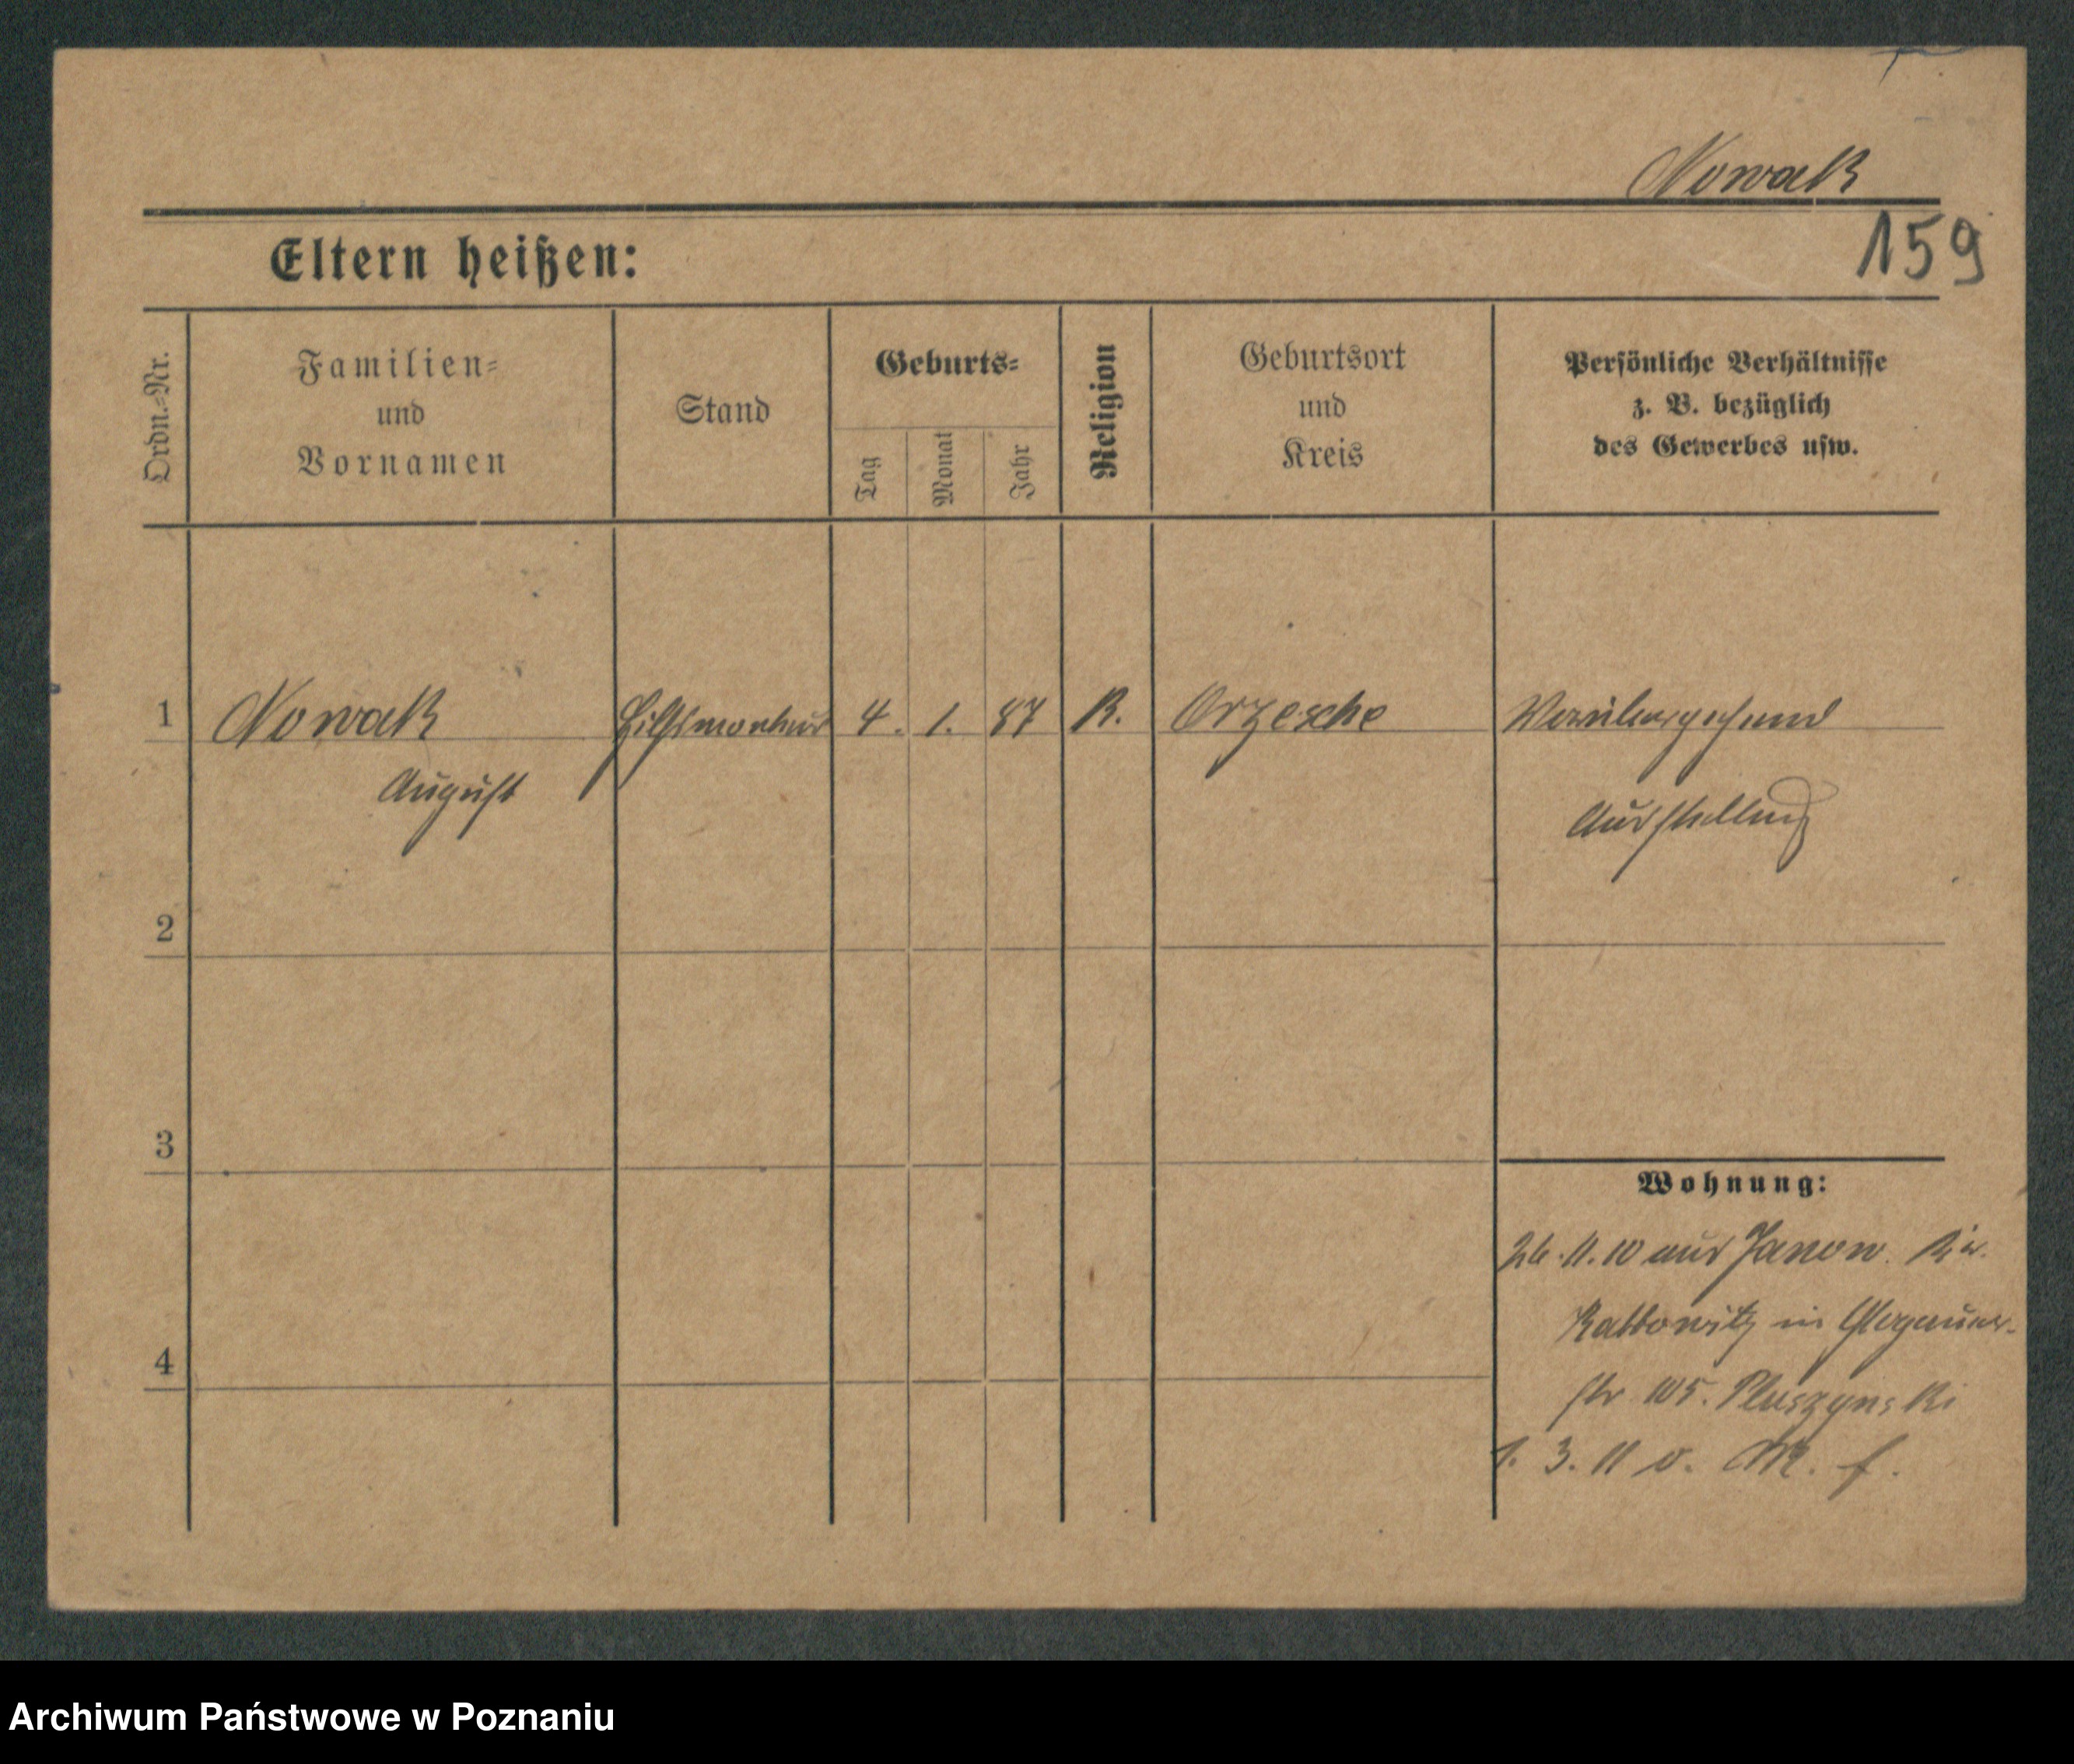 Nowak
159
Eltern heißen:
Ordn.-Nr.
Familien-
und
Vornamen
Stand
Geburts-
Tag
Monat
Jahr
Religion
Geburtsort
und
Kreis
Persönliche Verhältnisse
z. B. bezüglich
des Gewerbes usw.
1 Nowak Hilfsmonteur 4. 1. 87 K. Orzesche Vorübergehend
August
Ausstellung
2
3
Wohnung:
26.11.10 aus Janow.
Kattowitz in Glogauer-
4
str 105. Pluszynski
1. 3. 11 v. M. f.
Archiwum Państwowe w Poznaniu